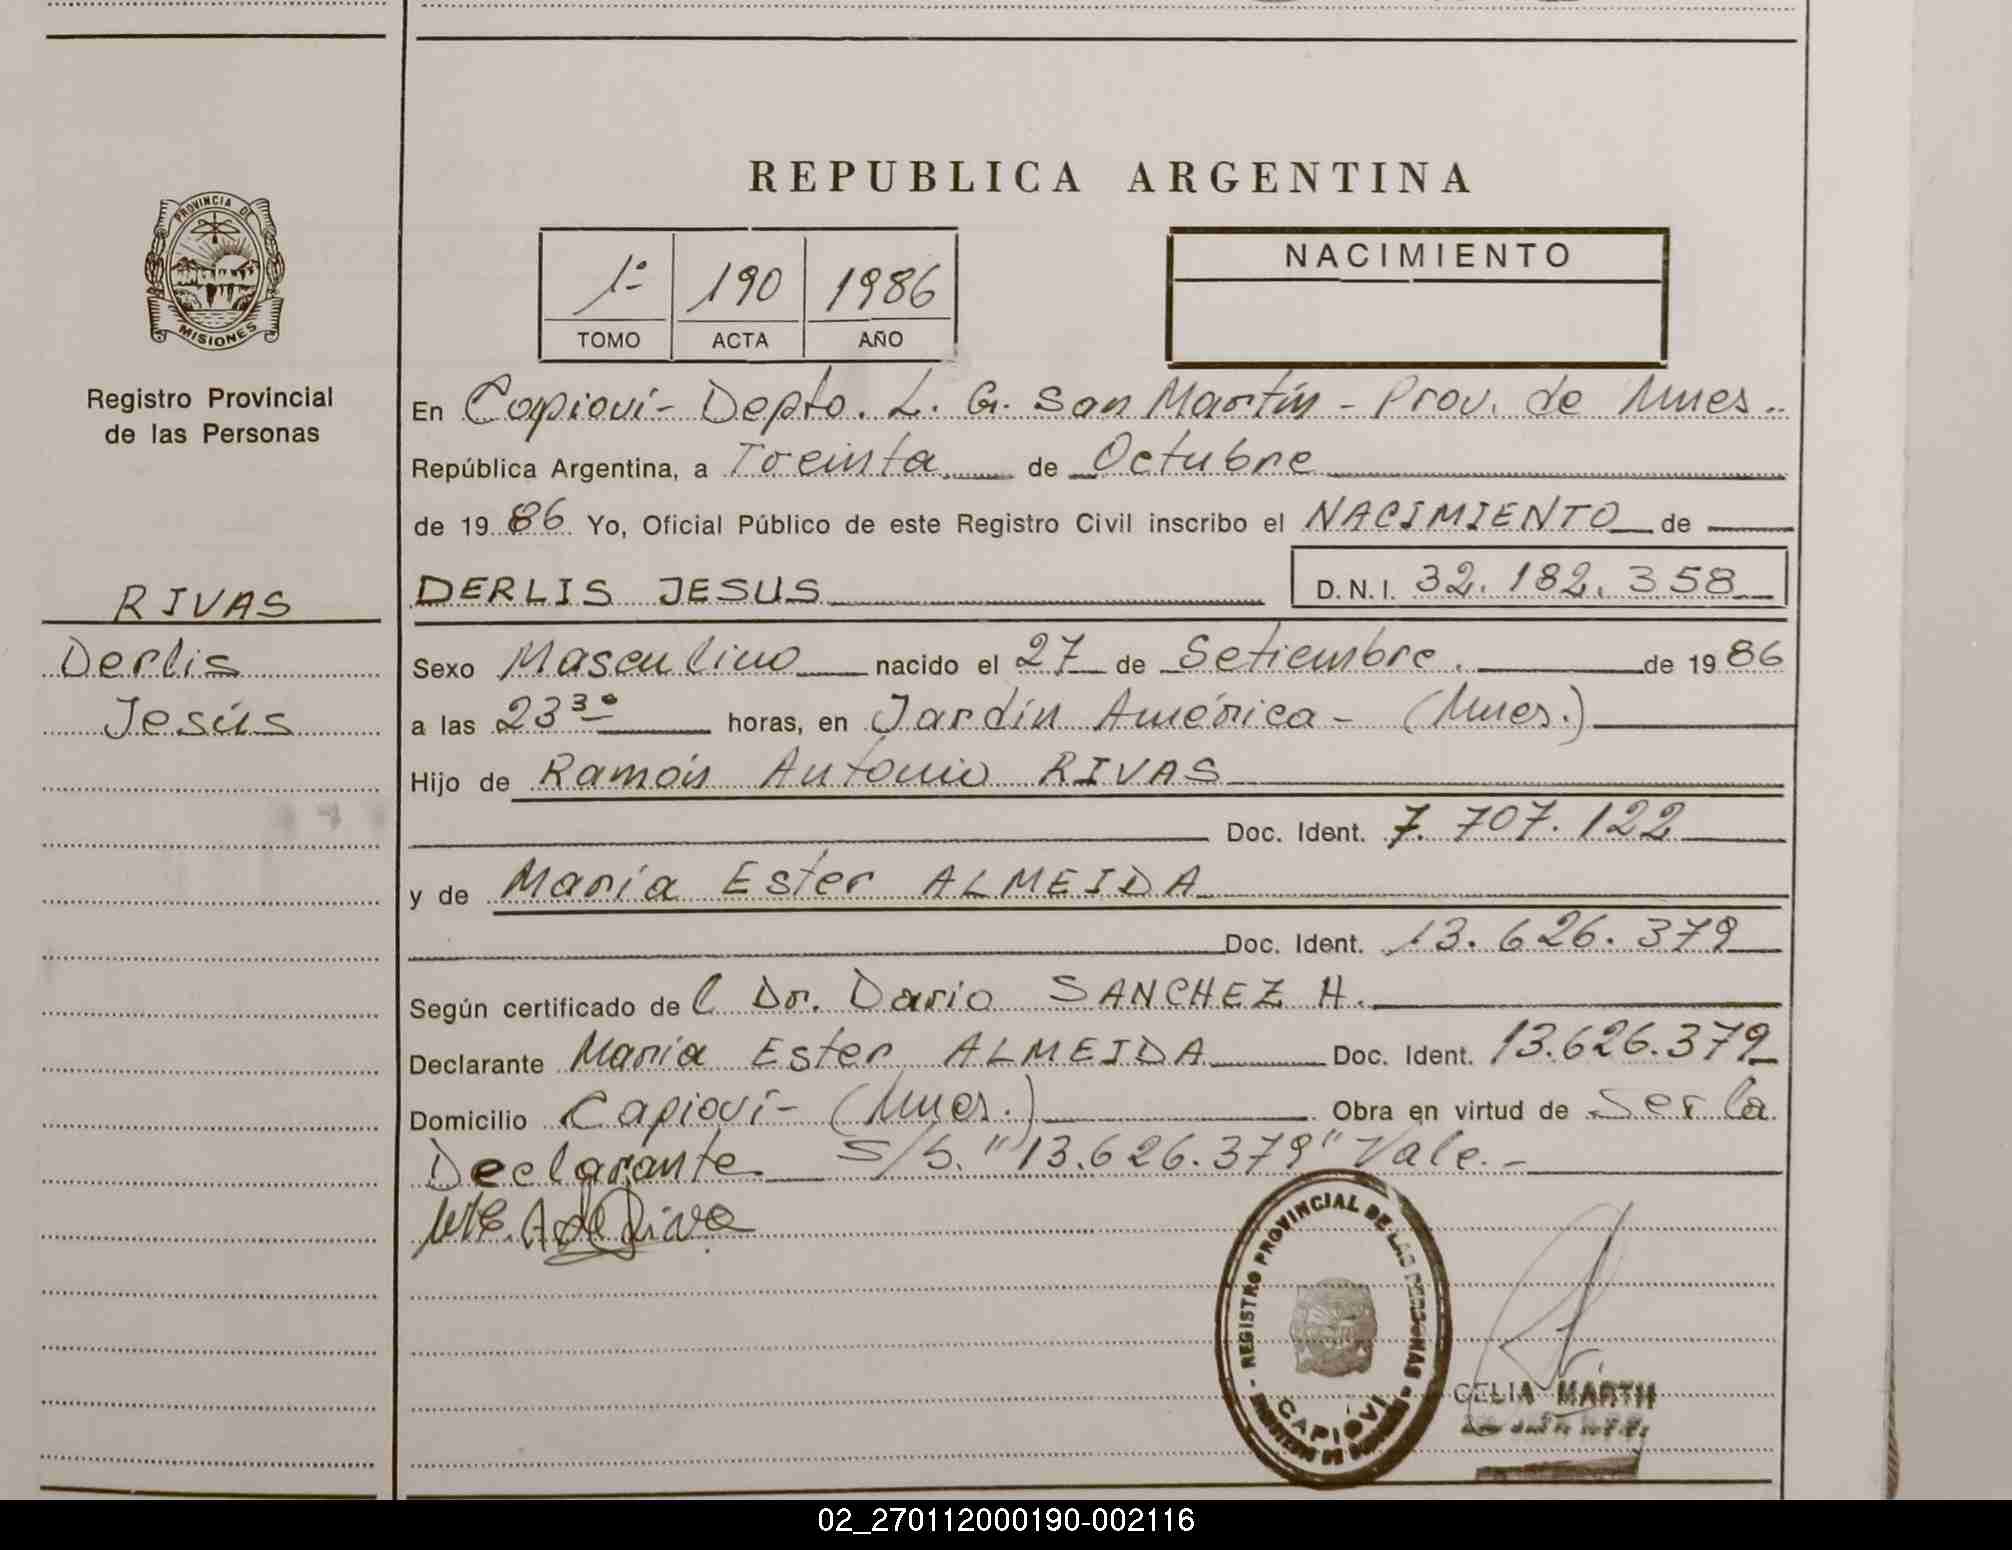 REPUBLICA ARGENTINA
PROVINCIA DE
MISIONES
Registro Provincial
de las Personas
RIVAS
Derlis
Jesús
1º 190 1986
TOMO ACTA AÑO
NACIMIENTO
En Capioví - Depto. L. G. San Martín - Prov. de Mnes.
República Argentina, a Treinta de Octubre
de 1986 Yo, Oficial Público de este Registro Civil inscribo el NACIMIENTO de
DERLIS JESUS D.N.I. 32.182.358
Sexo Masculino nacido el 27 de Setiembre de 1986
a las 23 30 horas, en Jardín América - (Mnes.)
Hijo de Ramón Antonio RIVAS
Doc. Ident. 7.707.122
y de María Ester ALMEIDA
Doc. Ident. 13.626.379
Según certificado del Dr. Dario SANCHEZ H.
Declarante María Ester ALMEIDA Doc. Ident. 13.626.379
Domicilio Capioví - (Mnes.) Obra en virtud de Ser la
Declarante S/b. "13.626.379" Vale. -
REGISTRO PROVINCIAL DE LAS PERSONAS
CAPIOVI
CELIA
02_270112000190-002116